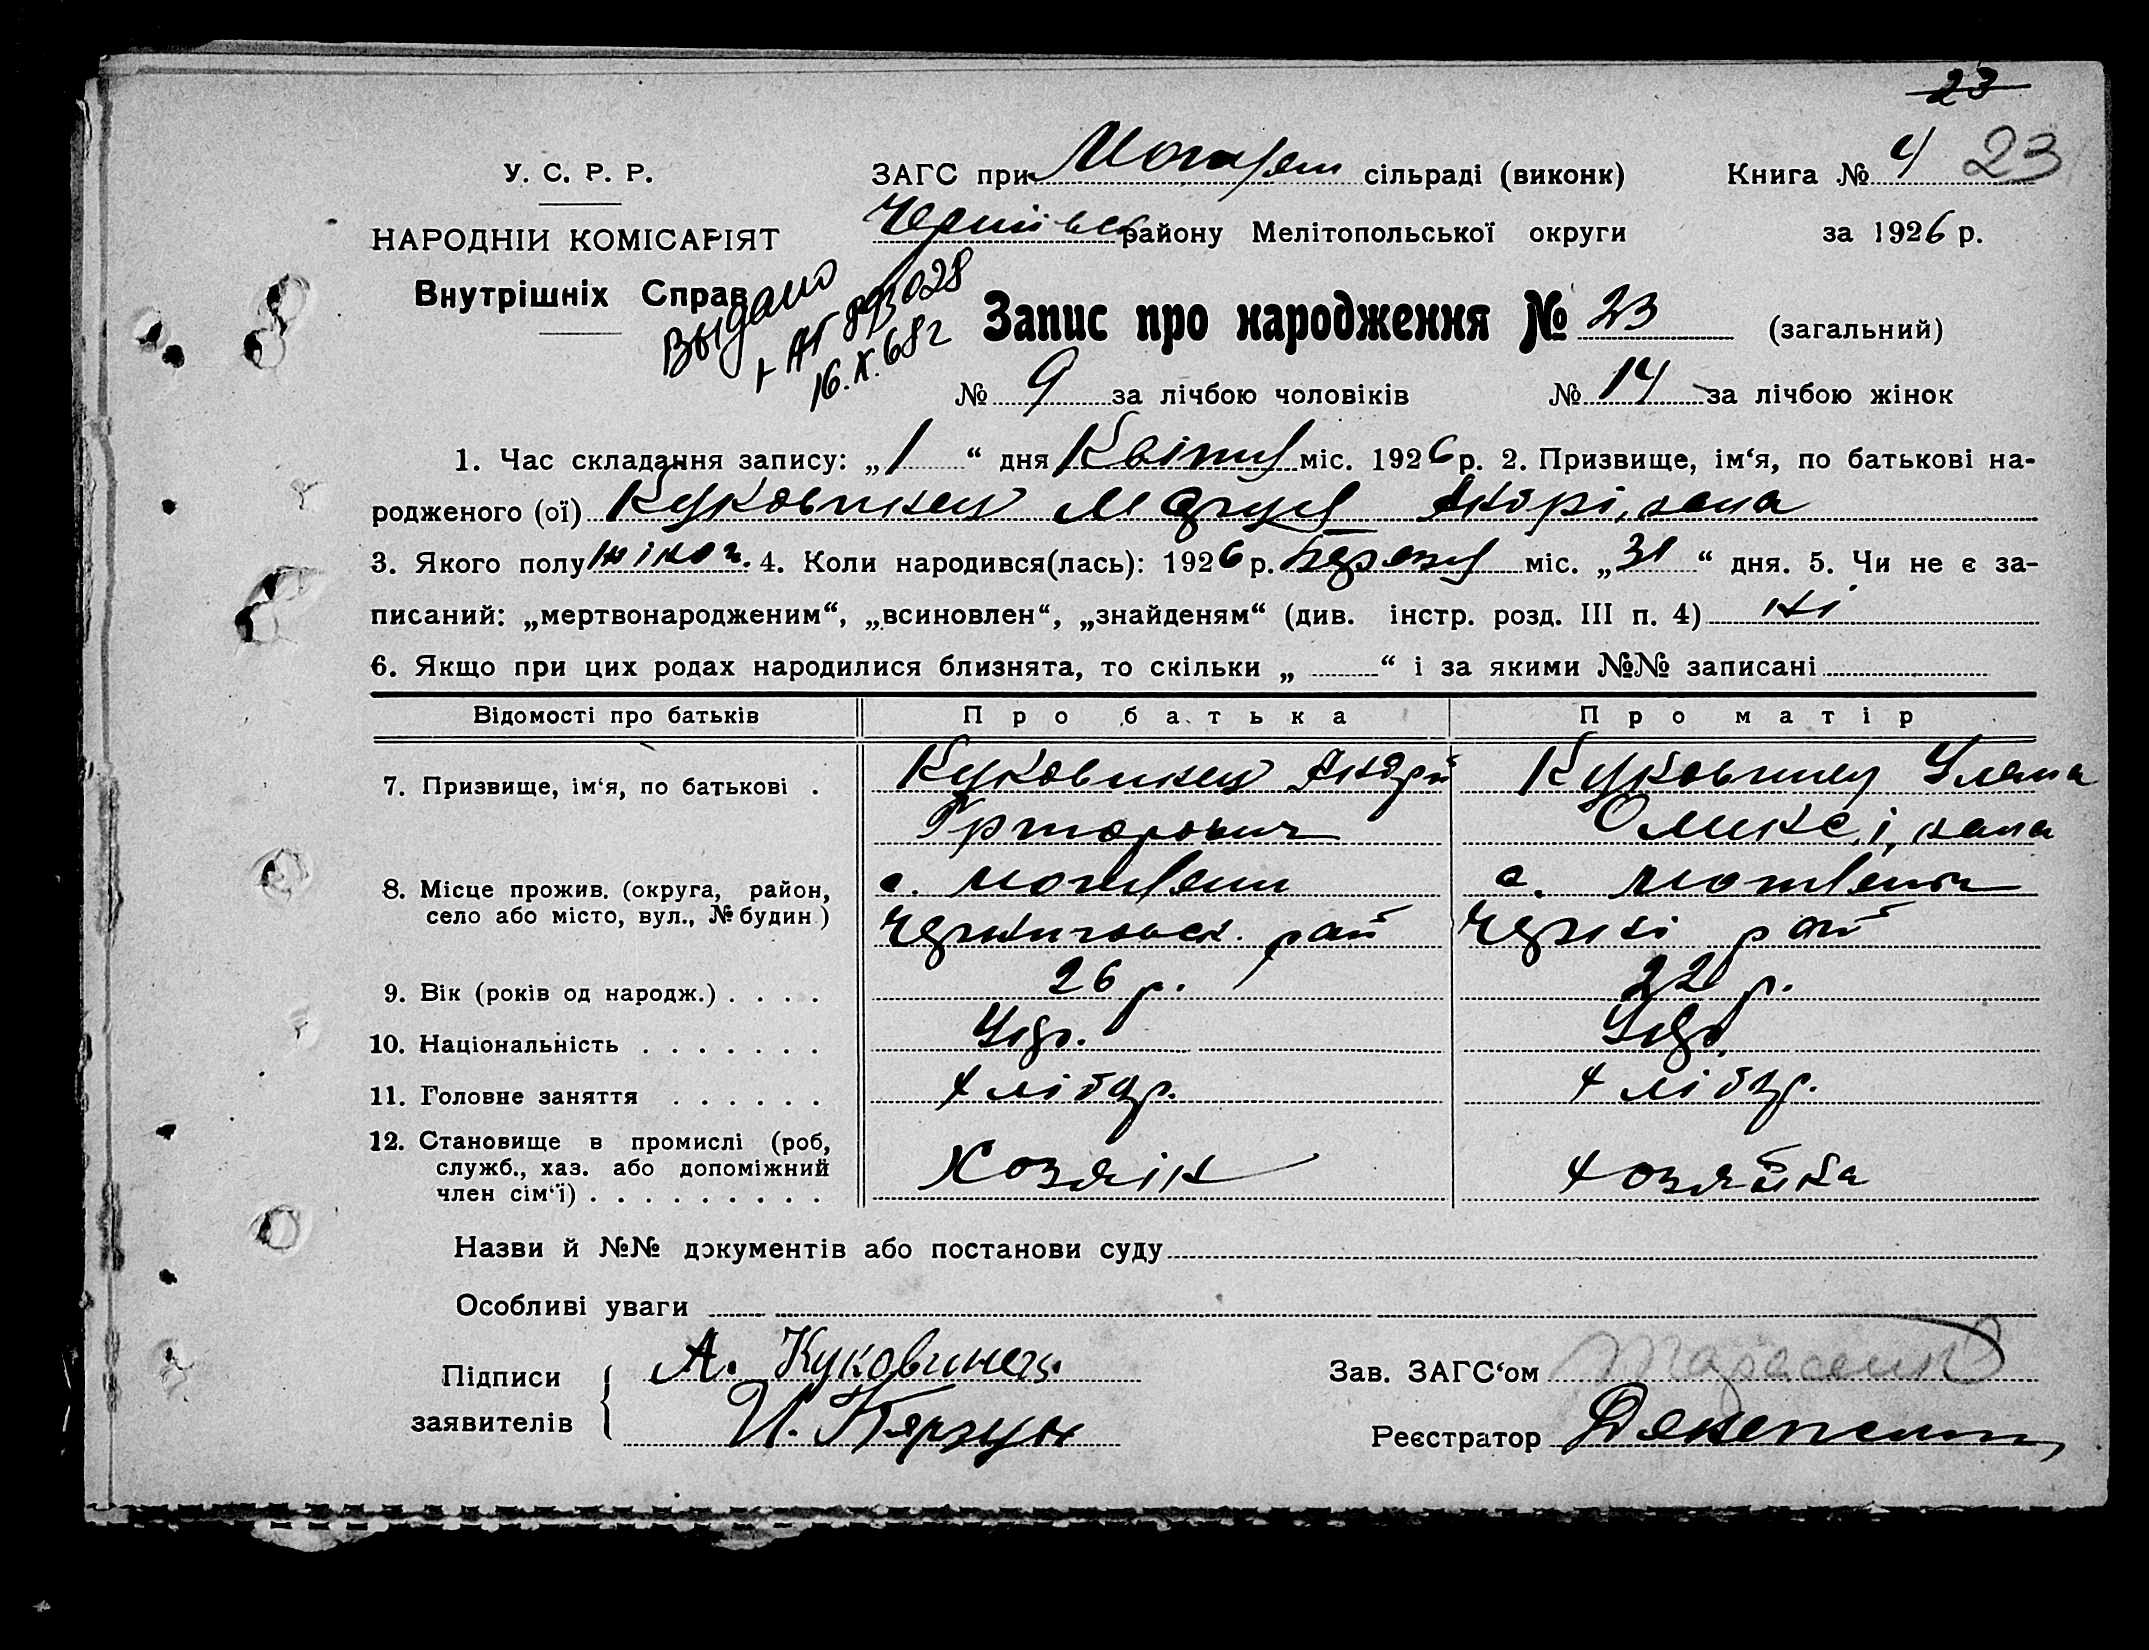 23
У. С. Р. Р.
ЗАГС при сільраді (виконк)
Книга № 4 23
НАРОДНІЙ КОМІСАРІЯТ
району Мелітопольської округи
за 1926 р.
Внутрішніх Справ
Выдано
I АГ 893028
16.X.68г
Запис про народження № 23 (загальний)
№ 9 за лічбою чоловіків № 14 за лічбою жінок
1. Час складання запису: „1“ дня Квітня міс. 1926 р. 2. Призвище, ім‘я, по батькові на-
родженого (ої) Куковинец
3. Якого полу жіноч. 4. Коли народився(лась): 1926 р. березня міс. „31“ дня. 5. Чи не є за-
писаний: „мертвонародженим“, „всиновлен“, „знайденям“ (див. інстр. розд. III п. 4) ні
6. Якщо при цих родах народилися близнята, то скільки „ “ і за якими №№ записані
Відомості про батьків Про батька Про матір
7. Призвище, ім‘я, по батькові . Куковинец Андрій Куковинец Уляна
Григорович
8. Місце прожив. (округа, район, с. с.
село або місто, вул., № будин.) рай рай
9. Вік (років од народж.) . . . . 26 р. 22 р.
10. Національність . . . . . . . Укр. Укр.
11. Головне заняття . . . . . . хлібор. хлібор.
12. Становище в промислі (роб,
служб., хаз. або допоміжний Хозяін хозяйка
член сім‘ї) . . . . . . . . .
Назви й №№ документів або постанови суду
Особливі уваги
Підписи А. Куковинец.
заявителів И.
Зав. ЗАГС‘ом Тарасенко
Реєстратор